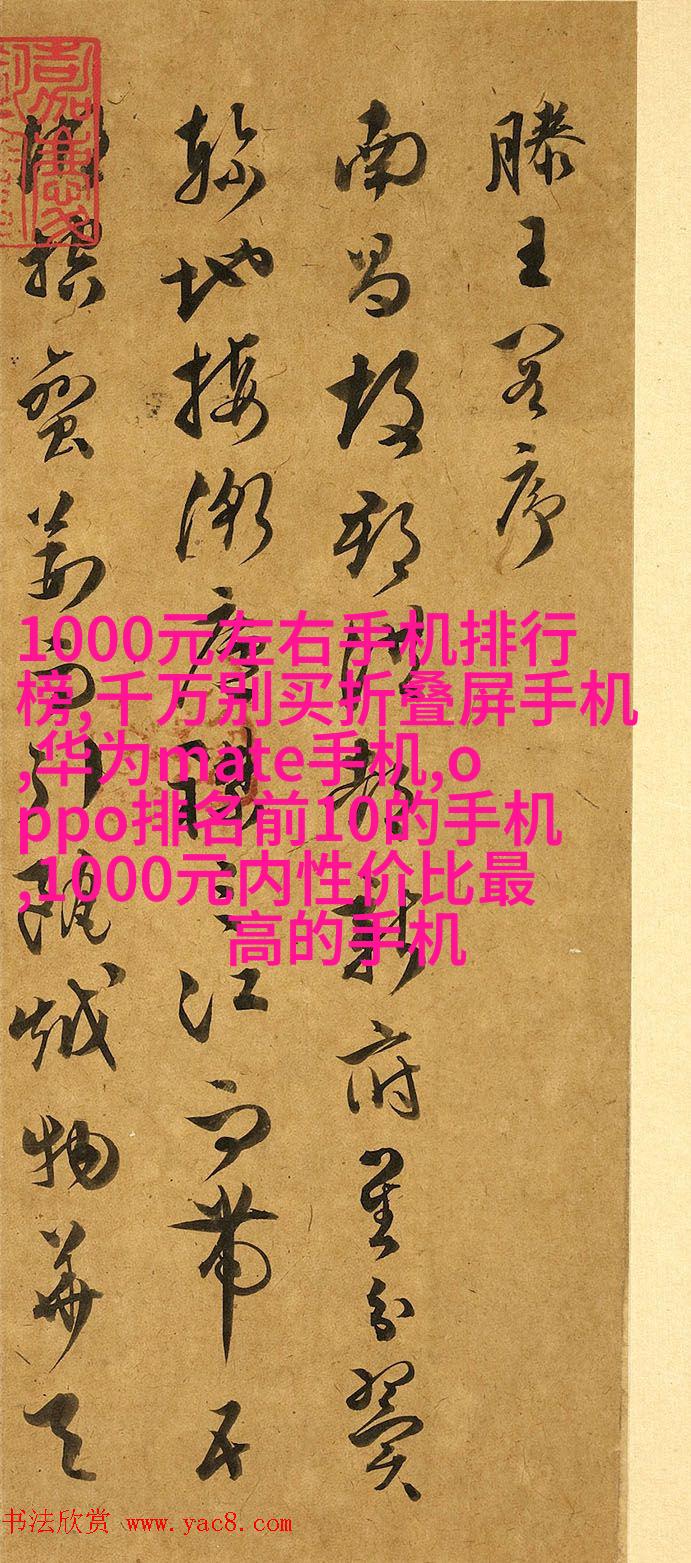 滕王閣序
南昌故郡洪都新府星分翼
軫地接衡廬襟三江而帶五
湖控蠻荊而引甌越物華天
1000元左右手机排行
榜,千万别买折叠屏手机
,华为mate手机,o
ppo排名前10的手机
,1000元内性价比最
高的手机
书法欣赏 www.yac8.com